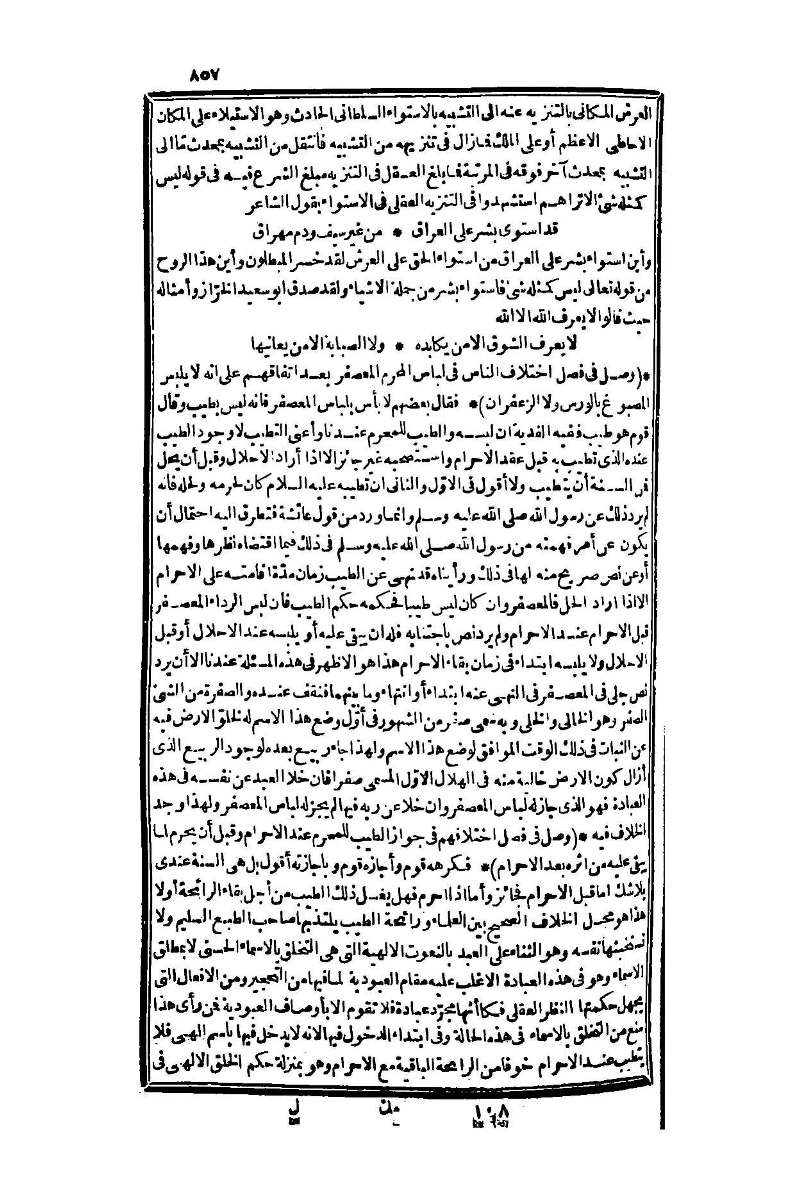 ٨٥٧
العرش المكانى بالتنزيه عنه الى التشبيه بالاستواء السلطانى الحادث وهو الاستيلاء على المكان
الاحاطى الاعظم أو على الملك فازال فى تنزيهه من التشبيه فانتقل من التشبيه بمحدث تما الى
التشبيه بمحدث آخر فوقه فى المرتبة فما بلغ العقل فى التنزيه مبلغ الشرع فيه فى قوله ليس
كمثله شئ الاتراهم استشهدوا فى التنزيه العقلى فى الاستواء بقول الشاعر
قد استوى بشر على العراق * من غير سيف ودم مهراق
وأين استواء بشر على العراق من استواء الحق على العرش لقد خسر المبطلون وأين هذا الروح
من قوله تعالى ليس كمثله شئ فاستواء بشر من جملة الاشياء ولقد صدق ابو سعيد الخراز وأمثاله
حيث قالوا لا يعرف الله الا الله
لا يعرف الشوق الا من يكابده * ولا الصبابة الا من يعانيها
*(وصل فى فصل اختلاف الناس فى لباس المحرم المعصفر بعد اتفاقهم على انه لا يلبس
المصبوغ بالورس ولا الزعفران)* فقال بعضهم لا بأس بلباس المعصفر فانه ليس بطيب وقال
قوم هو طيب ففيه الفدية ان لبسه والطيب للمحرم عندنا وأعنى التطيب لا وجود الطيب
عنده الذى تطيب به قبل عقد الاحرام واستصحبه غير جائز الا اذا أراد الاحلال وقبل أن يحل
فمن السنة أن يتطيب ولا أقول فى الاول والثانى ان تطيبه عليه السلام كان لحرمه ولحله فانه
لم يرد ذلك عن رسول الله صلى الله عليه وسلم وانما ورد من قول عائشة فتطرق اليه احتمال أن
يكون عن أمر فهمته من رسول الله صلى الله عليه وسلم فى ذلك فيما اقتضاه نظرها وفهمها
أو عن نص صريح منه لها فى ذلك ورأيناه قد نهى عن الطيب زمان مدّة اقامته على الاحرام
الا اذا اراد الحل فالمعصفر وان كان ليس طيبا فحكمه حكم الطيب فان لبس الرداء المعصفر
قبل الاحرام عند الاحرام ولم يرد نص باجتنابه فله ان يبقى عليه أو يلبسه عند الاحلال أو قبل
الاحلال ولا يلبسه ابتداء فى زمان بقاء الاحرام هذا هو الاظهر فى هذه المسئلة عندنا الا أن يرد
نص جلى فى المعصفر فى النهى عنه ابتداء أو انتهاء وما بينهما فنقف عنده والصفرة من الشئ
الصفر وهو الخالى والخلى وبه سمى صفر من الشهور فى أوّل وضع هذا الاسم له لخلوّ الارض فيه
عن النبات فى ذلك الوقت الموافق لوضع هذا الاسم ولهذا جاء ربيع بعده لوجود الربيع الذى
أزال كون الارض خالية منه فى الهلال الاوّل المسمى صفرا فان خلا العبد عن نفسه فى هذه
العبادة فهو الذى جاز له لباس المعصفر وان خلا عن ربه فيها لم يجز له لباس المعصفر ولهذا وجد
الخلاف فيه *(وصل فى فصل اختلافهم فى جواز الطيب للمحرم عند الاحرام وقبل أن يحرم لما
يبقى عليه من اثره بعد الاحرام)* فكرهه قوم وأجازه قوم وباجازته أقول بل هى السنة عندى
بلا شك اما قبل الاحرام فجائز وأما اذا احرم فهل يغسل ذلك الطيب من أجل بقاء الرائحة أو لا
هذا هو محل الخلاف الصحيح بين العلماء ورائحة الطيب يلتذ بها صاحب الطبع السليم ولا
تستخبثها نفسه وهو الثناء على العبد بالنعوت الالهية التى هى التخلق بالاسماء الحسنى لا بمطلق
الاسماء وهو فى هذه العبادة الاغلب عليه مقام العبودية لما فيها من التحجير ومن الافعال التى
يجهل حكمتها النظر العقلى فكأنها مجرّد عبادة فلا تقوم الا بأوصاف العبودية فمن رأى هذا
منع من التخلق بالاسماء فى هذه الحالة وفى ابتداء الدخول فيها لانه لا يدخل فيها باسم الهى فلا
يتطيب عند الاحرام خوفا من الرائحة الباقية مع الاحرام وهو بمنزلة حكم الخلق الالهى فى
١٠٨ مك ل